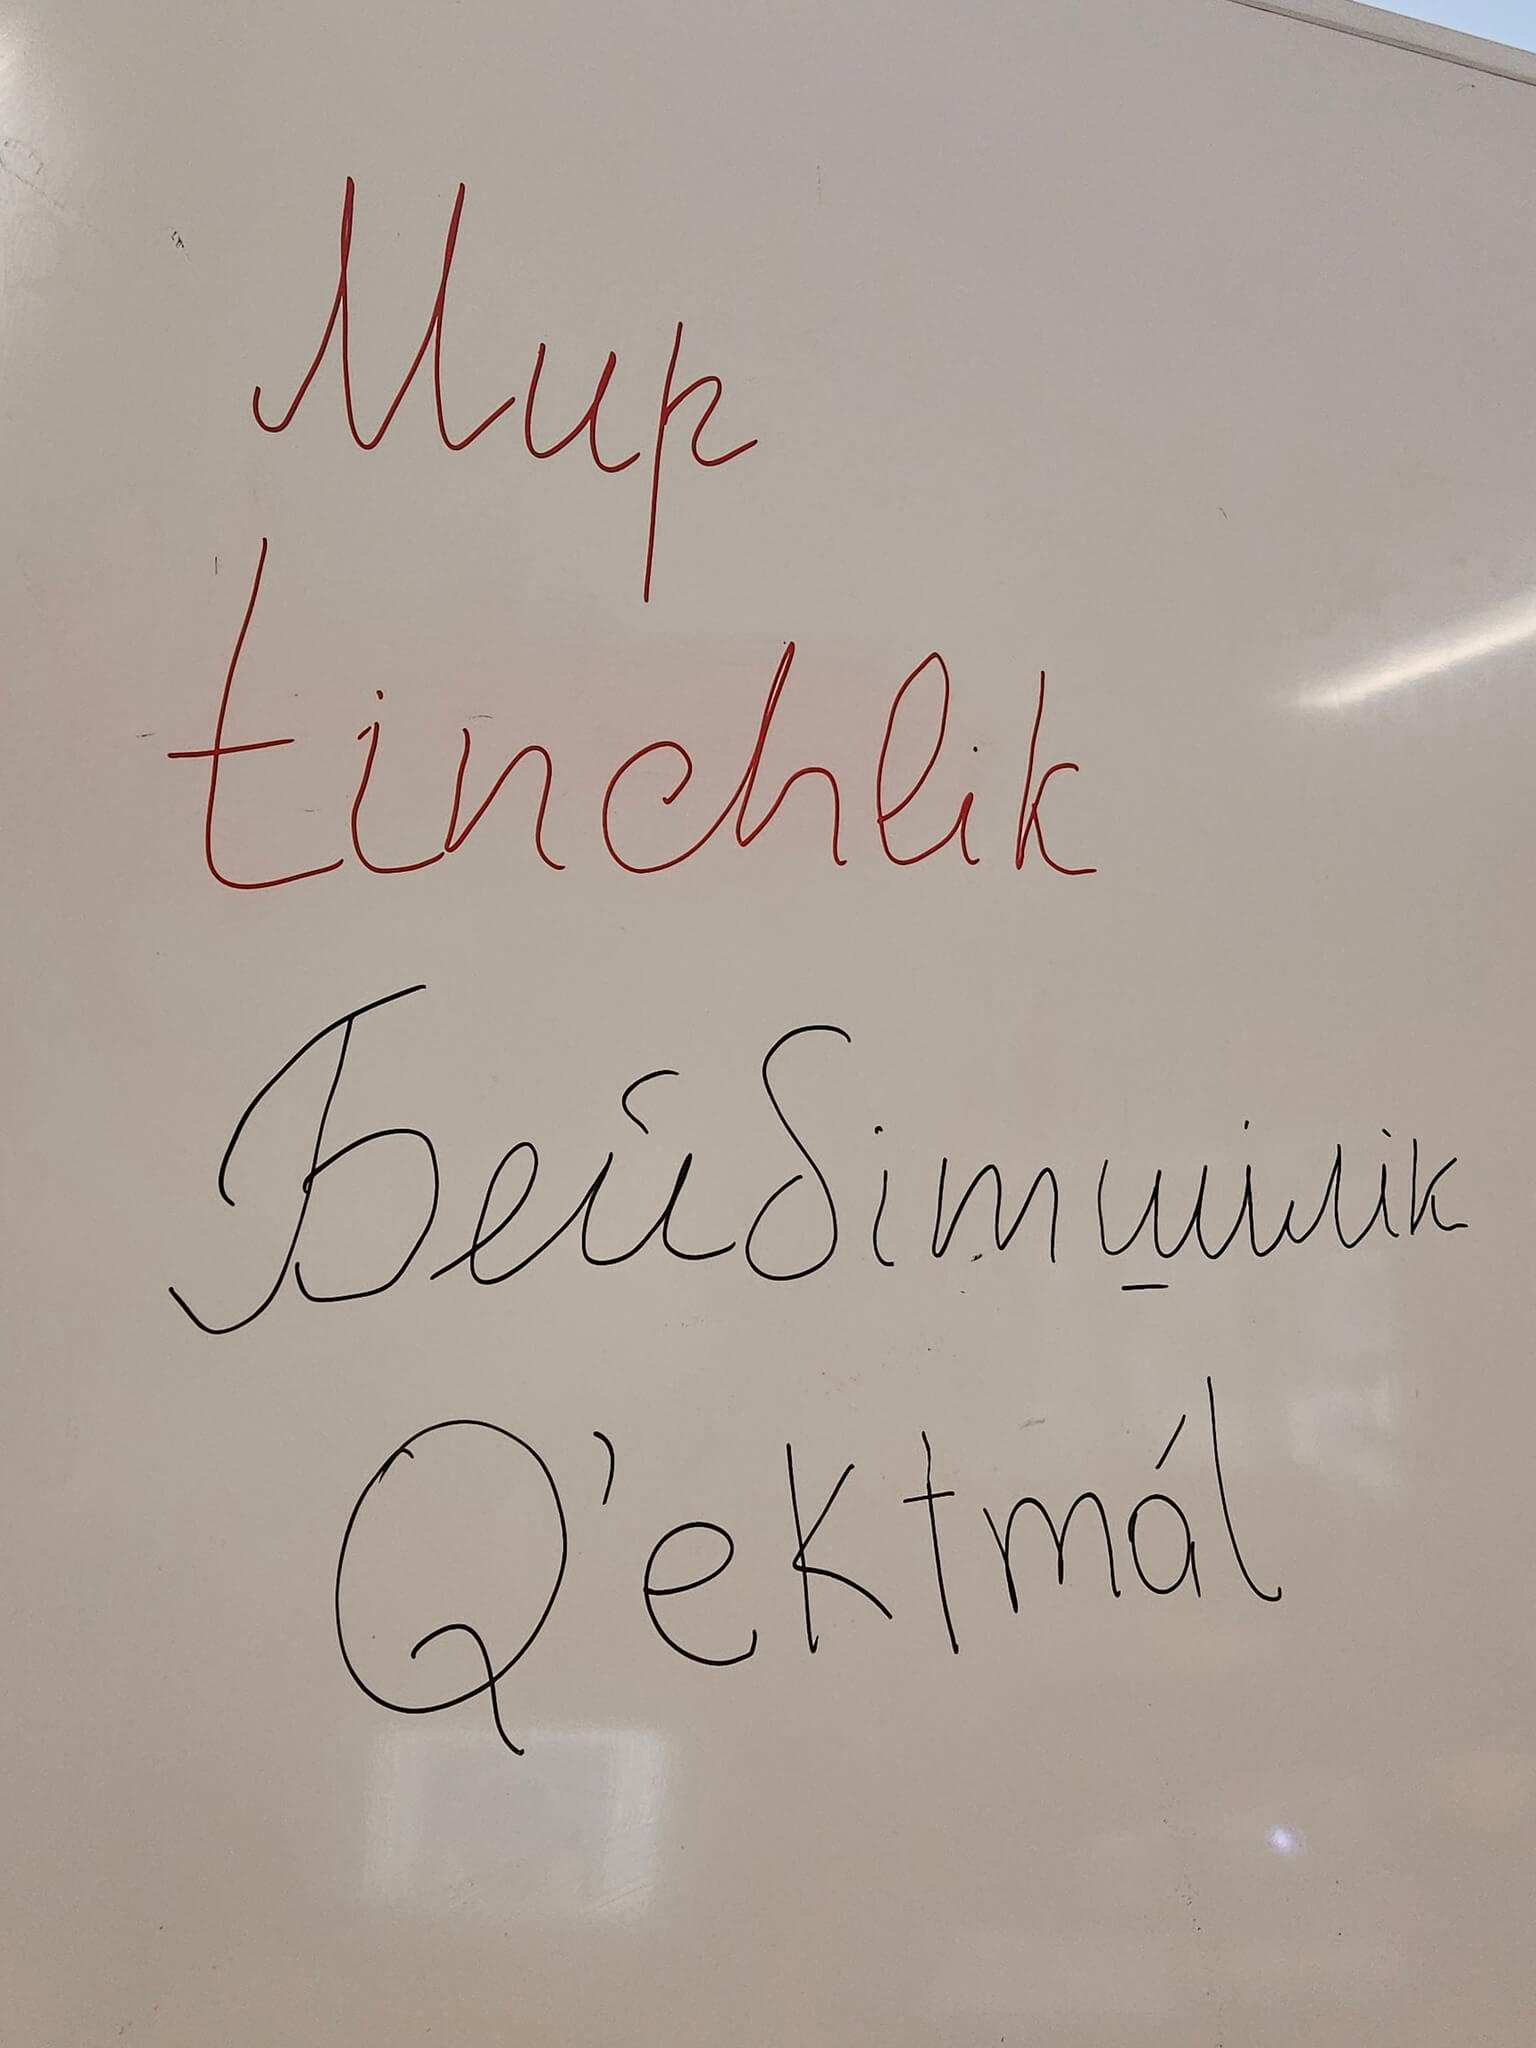 Мир
tinchlik
Бейбітшілік
Q'ektmál